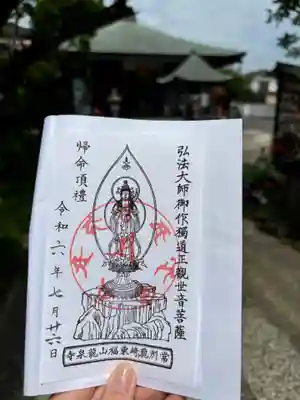 弘法大師御作獨道正觀世音菩薩
帰命頂禮
令和六年七月廿六日
常別亀崎東福山龍泉寺